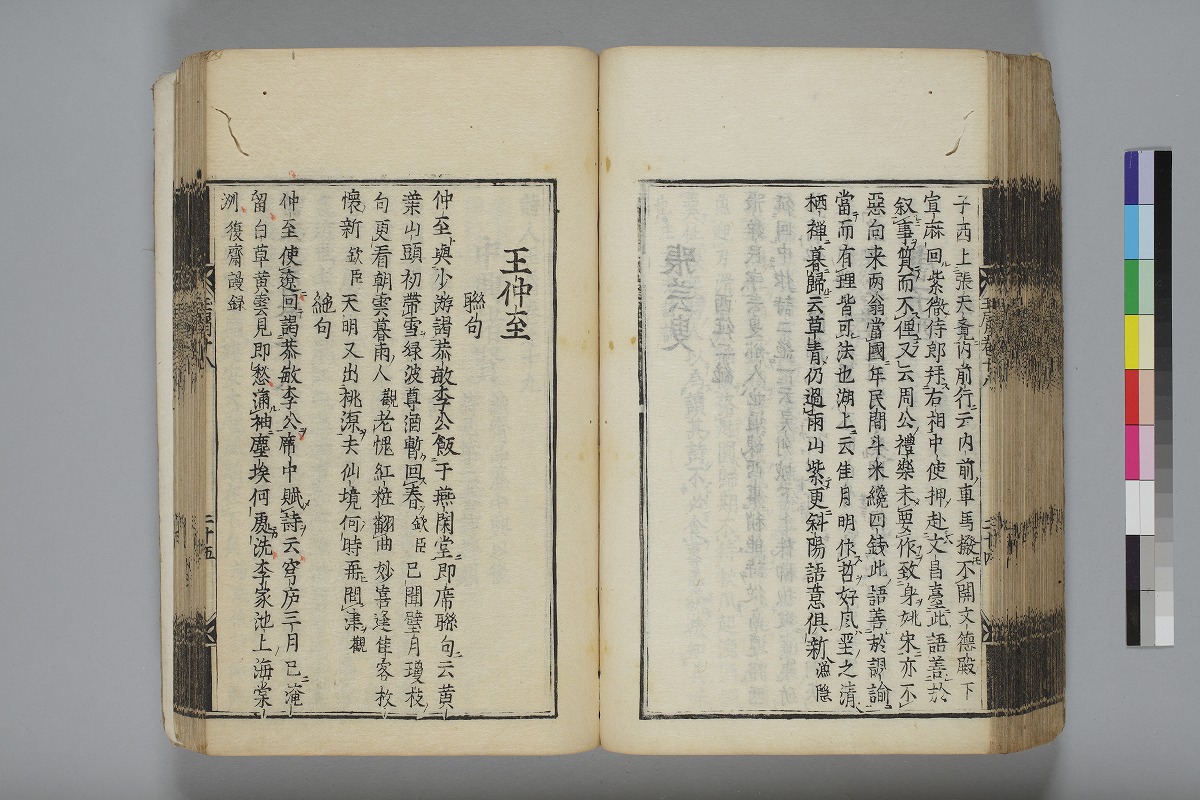 子西上張天覺内前行云内前車馬撥不開文德殿下
宣麻回紫微侍郎拜右相中使押赴文昌臺此語善於
叙事質而不俚又云周公禮樂未要作致身姚宋亦不
惡向来兩翁當國年民間斗米纔四錢此語善於諷諭
當而有理皆可法也湖上云佳月明作哲好風聖之清
栖禅暮歸云草青仍過雨山紫更斜陽語意俱新漁隠
王仲至
聯句
仲至與少游謁恭敏李公飯于燕閑堂即席聯句云黄
葉山頭初帶雪緑波尊酒暫回春欽臣已聞璧月瓊枝
句更看朝雲暮雨人觀老愧紅粧翻曲妙喜逢佳客枚
懷新欽臣天明又出桃源去仙境何時再問津觀
絶句
仲至使遼回謁恭敏李公席中賦詩云穹庐三月已淹
留白草黄雲見即愁滿袖塵埃何處洗李家池上海棠
洲復齋謾録
二十五